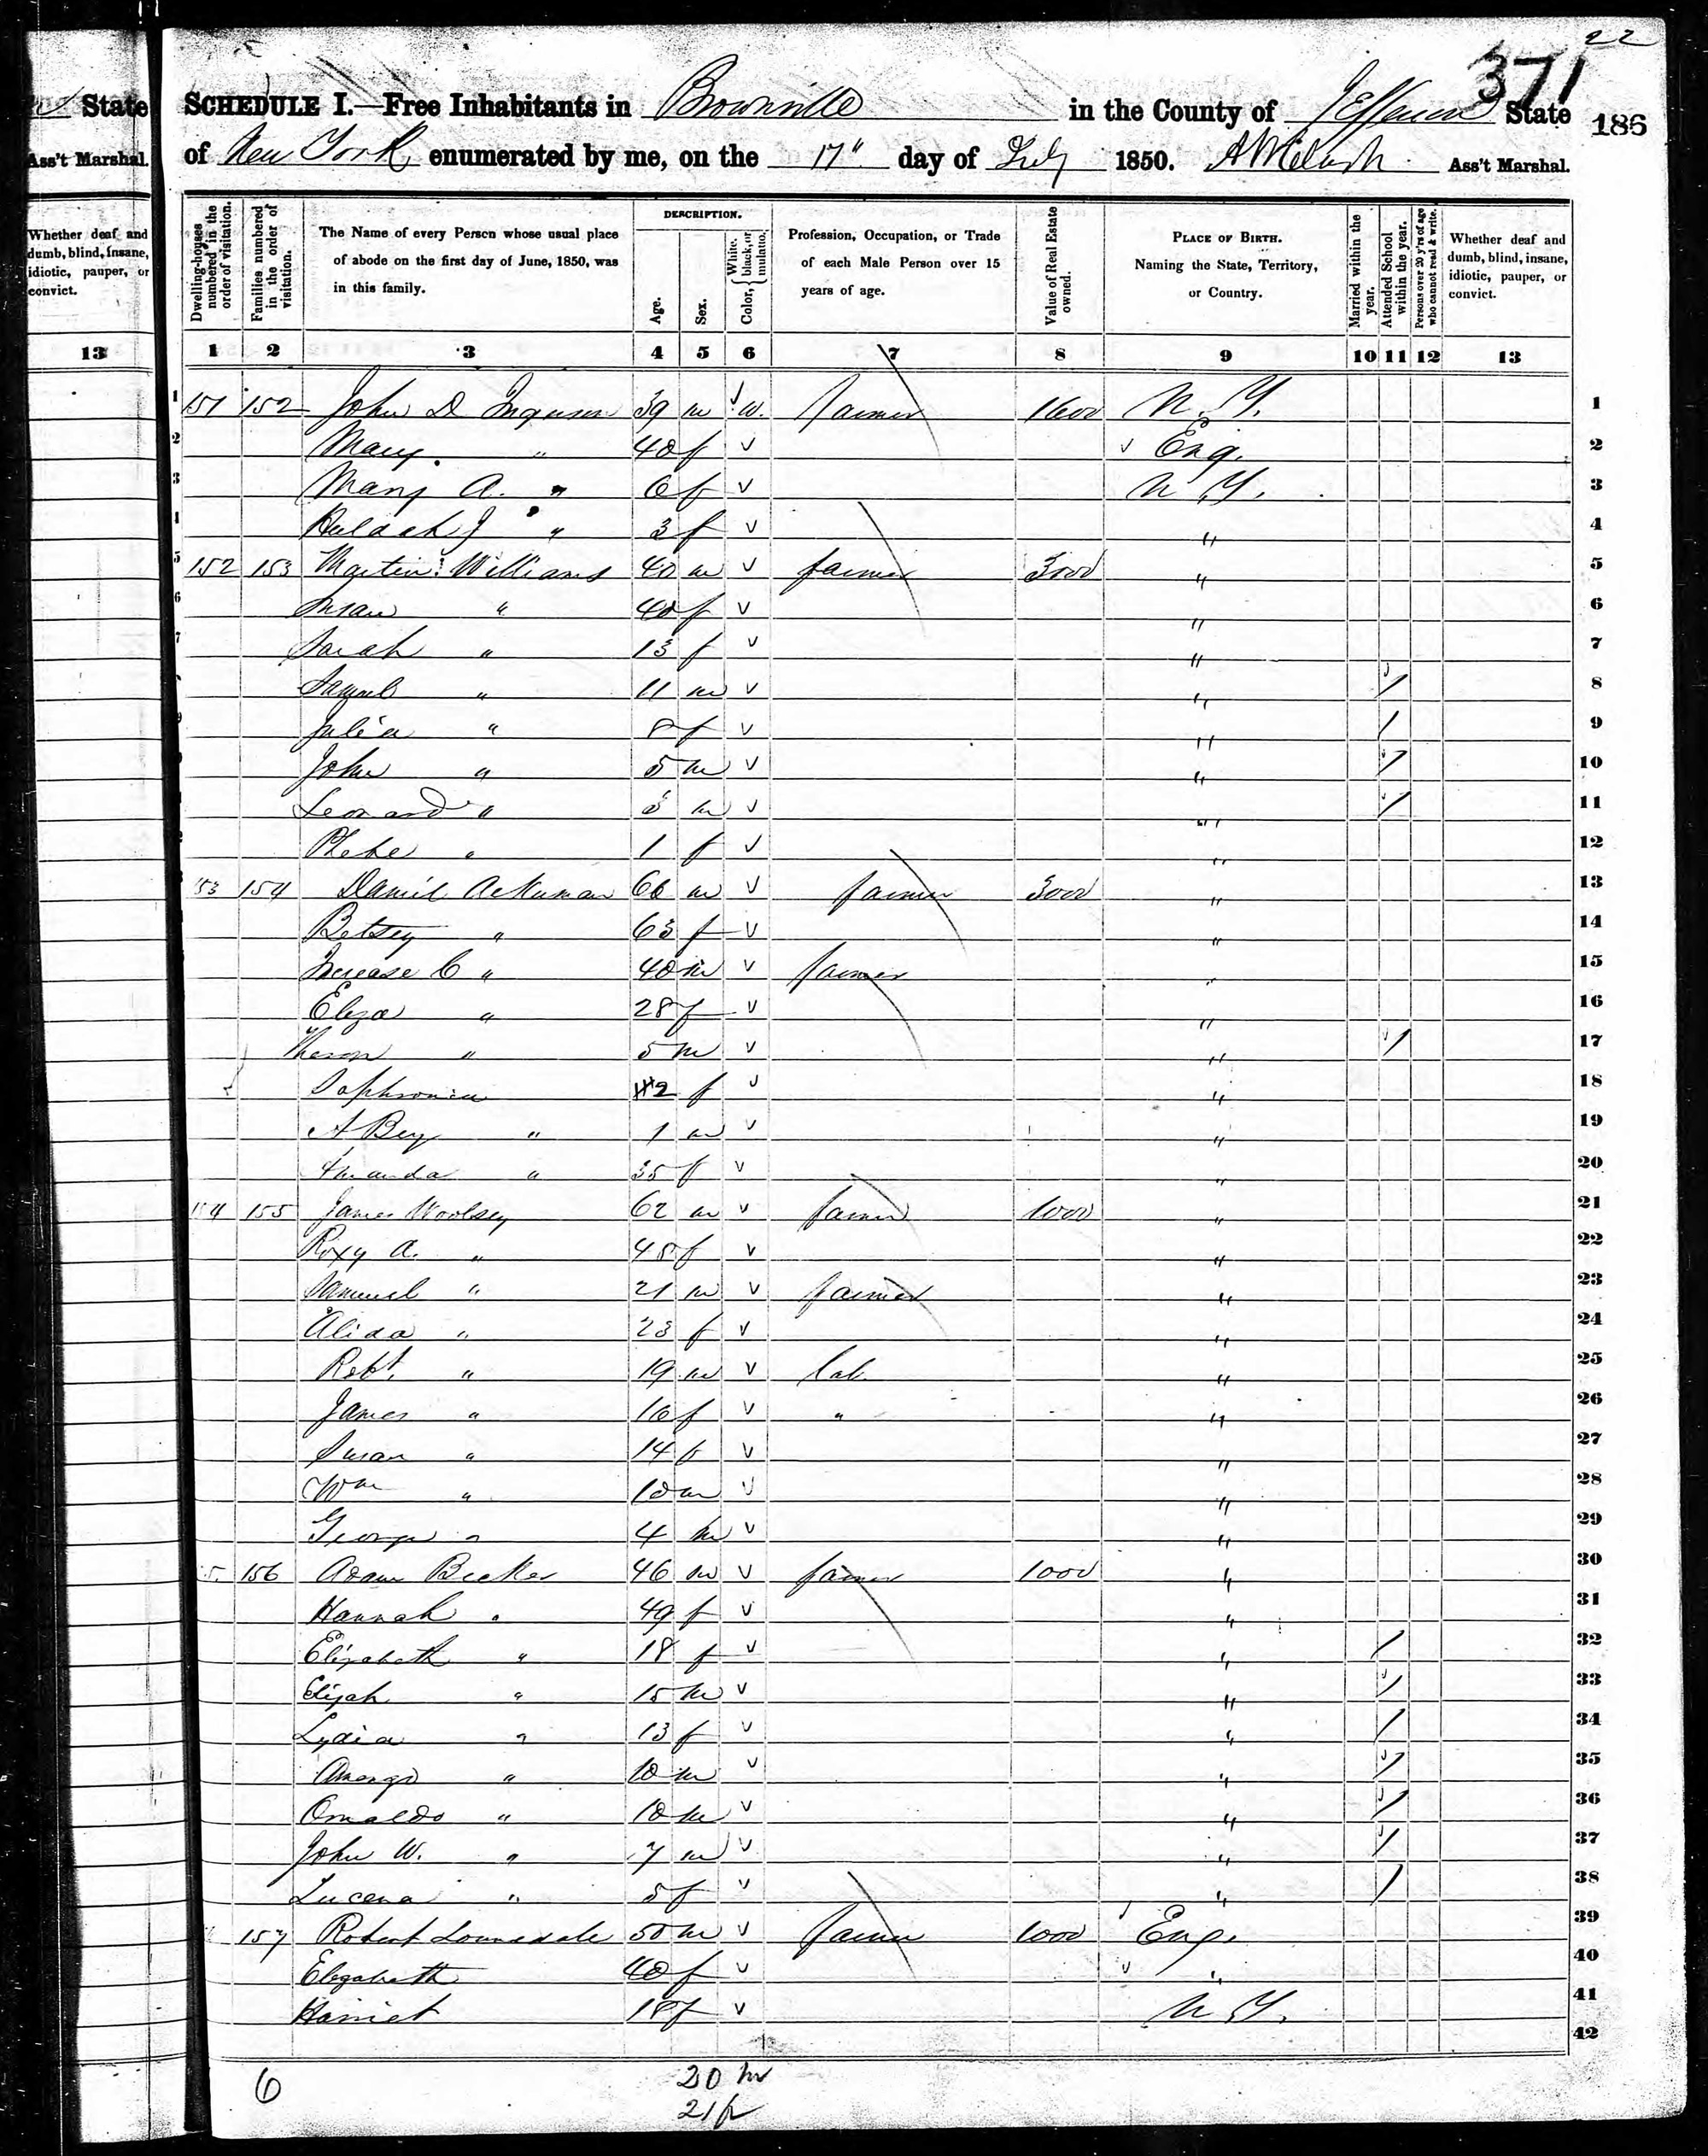 22
371
State SCHEDULE I.—Free Inhabitants in Brownville in the County of Jefferson State 186
Ass't Marshal. of New York enumerated by me, on the 17" day of July 1850. Ass't Marshal.
Whether deaf and dumb, blind, insane, idiotic, pauper, or convict.
Dwelling-houses numbered in the order of visitation.
Families numbered in the order of visitation.
The Name of every Person whose usual place of abode on the first day of June, 1850, was in this family.
DESCRIPTION.
Age.
Sex.
Color, White, black, or mulatto.
Profession, Occupation, or Trade of each Male Person over 15 years of age.
Value of Real Estate owned.
PLACE OF BIRTH. Naming the State, Territory, or Country.
Married within the year.
Attended School within the year.
Persons over 20 y'rs of age who cannot read & write.
Whether deaf and dumb, blind, insane, idiotic, pauper, or convict.
13 1 2 3 4 5 6 7 8 9 10 11 12 13
1 151 152 John D 39 m w. farmer 1600 N.Y. 1
2 Mary " 40 f v Eng. 2
3 Mary A. " 6 f v N.Y. 3
Huldah J " 3 f v " 4
5 152 153 Martin Williams 40 m v farmer 3000 " 5
6 Susan " 40 f v " 6
7 Sarah " 13 f v " 7
Samuel " 11 m v " / 8
9 Julia " 8 f v " / 9
John " 5 m v " / 10
Leonard " m v " / 11
Phebe " 1 f v " 12
53 154 Daniel Ackerman 66 m v farmer 3000 " 13
Betsey " 63 f v " 14
Increase C " 40 m v farmer " 15
Eliza " 28 f v " 16
Theron " 5 m v " / 17
Sophronia 2 f v " 18
" 1 m v " 19
Amanda " 35 f v " 20
155 James Woolsey 62 m v farmer 1000 " 21
Roxy A. " 48 f v " 22
Samuel " 21 m v farmer " 23
Alida " 23 f v " 24
Robt. " 19 m v lab. " 25
James " 16 f v " " 26
Susan " 14 f v " 27
Wm " 10 m v " 28
George " 4 m v " 29
156 Adam Becker 46 m v farmer 1000 " 30
Hannah " 49 f v " 31
Elizabeth " 18 f v " / 32
Elijah " 15 m v " / 33
Lydia " 13 f v " / 34
" 10 m v " / 35
" 10 m v " / 36
John W. " 7 m v " / 37
Lucena " 5 f v " / 38
157 Robert Lonnsdale 50 m v farmer 1000 Eng. 39
Elizabeth 40 f v " 40
Harriet 18 f v N.Y. 41
42
6 20 m
21 f